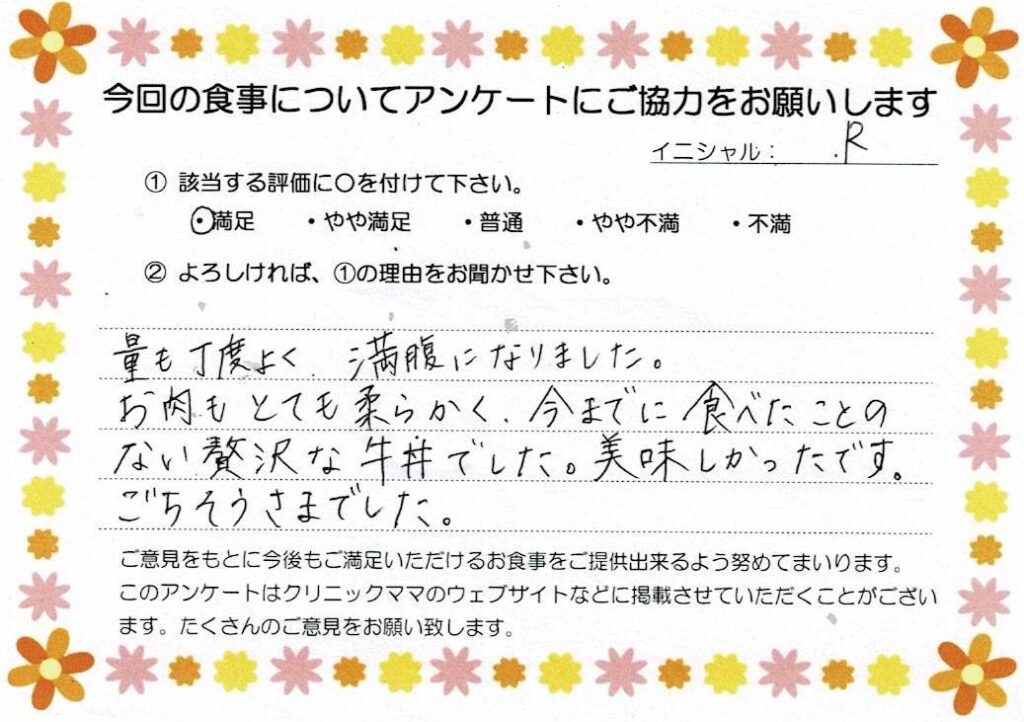 今回の食事についてアンケートにご協力をお願いします
イニシャル： .R
① 該当する評価に〇を付けて下さい。
・満足 ・やや満足 ・普通 ・やや不満 ・不満
② よろしければ、①の理由をお聞かせ下さい。
量も丁度よく、満腹になりました。
お肉もとても柔らかく、今までに食べたことの
ない贅沢な牛丼でした。美味しかったです。
ごちそうさまでした。
ご意見をもとに今後もご満足いただけるお食事をご提供出来るよう努めてまいります。
このアンケートはクリニックママのウェブサイトなどに掲載させていただくことがござい
ます。たくさんのご意見をお願い致します。